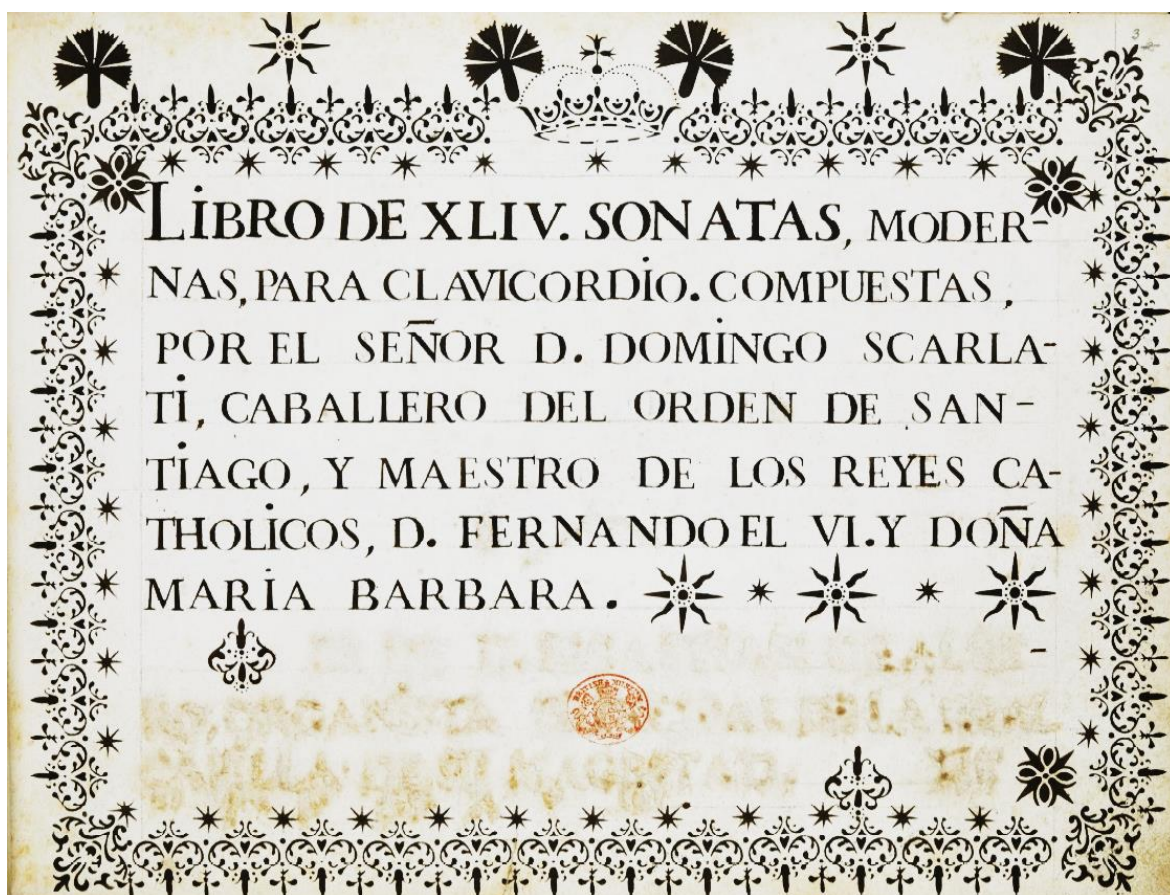 3
LIBRO DE XLIV. SONATAS, MODER-
NAS, PARA CLAVICORDIO. COMPUESTAS,
POR EL SEÑOR D. DOMINGO SCARLA-
TI, CABALLERO DEL ORDEN DE SAN-
TIAGO, Y MAESTRO DE LOS REYES CA-
THOLICOS, D. FERNANDO EL VI. Y DOÑA
MARIA BARBARA.